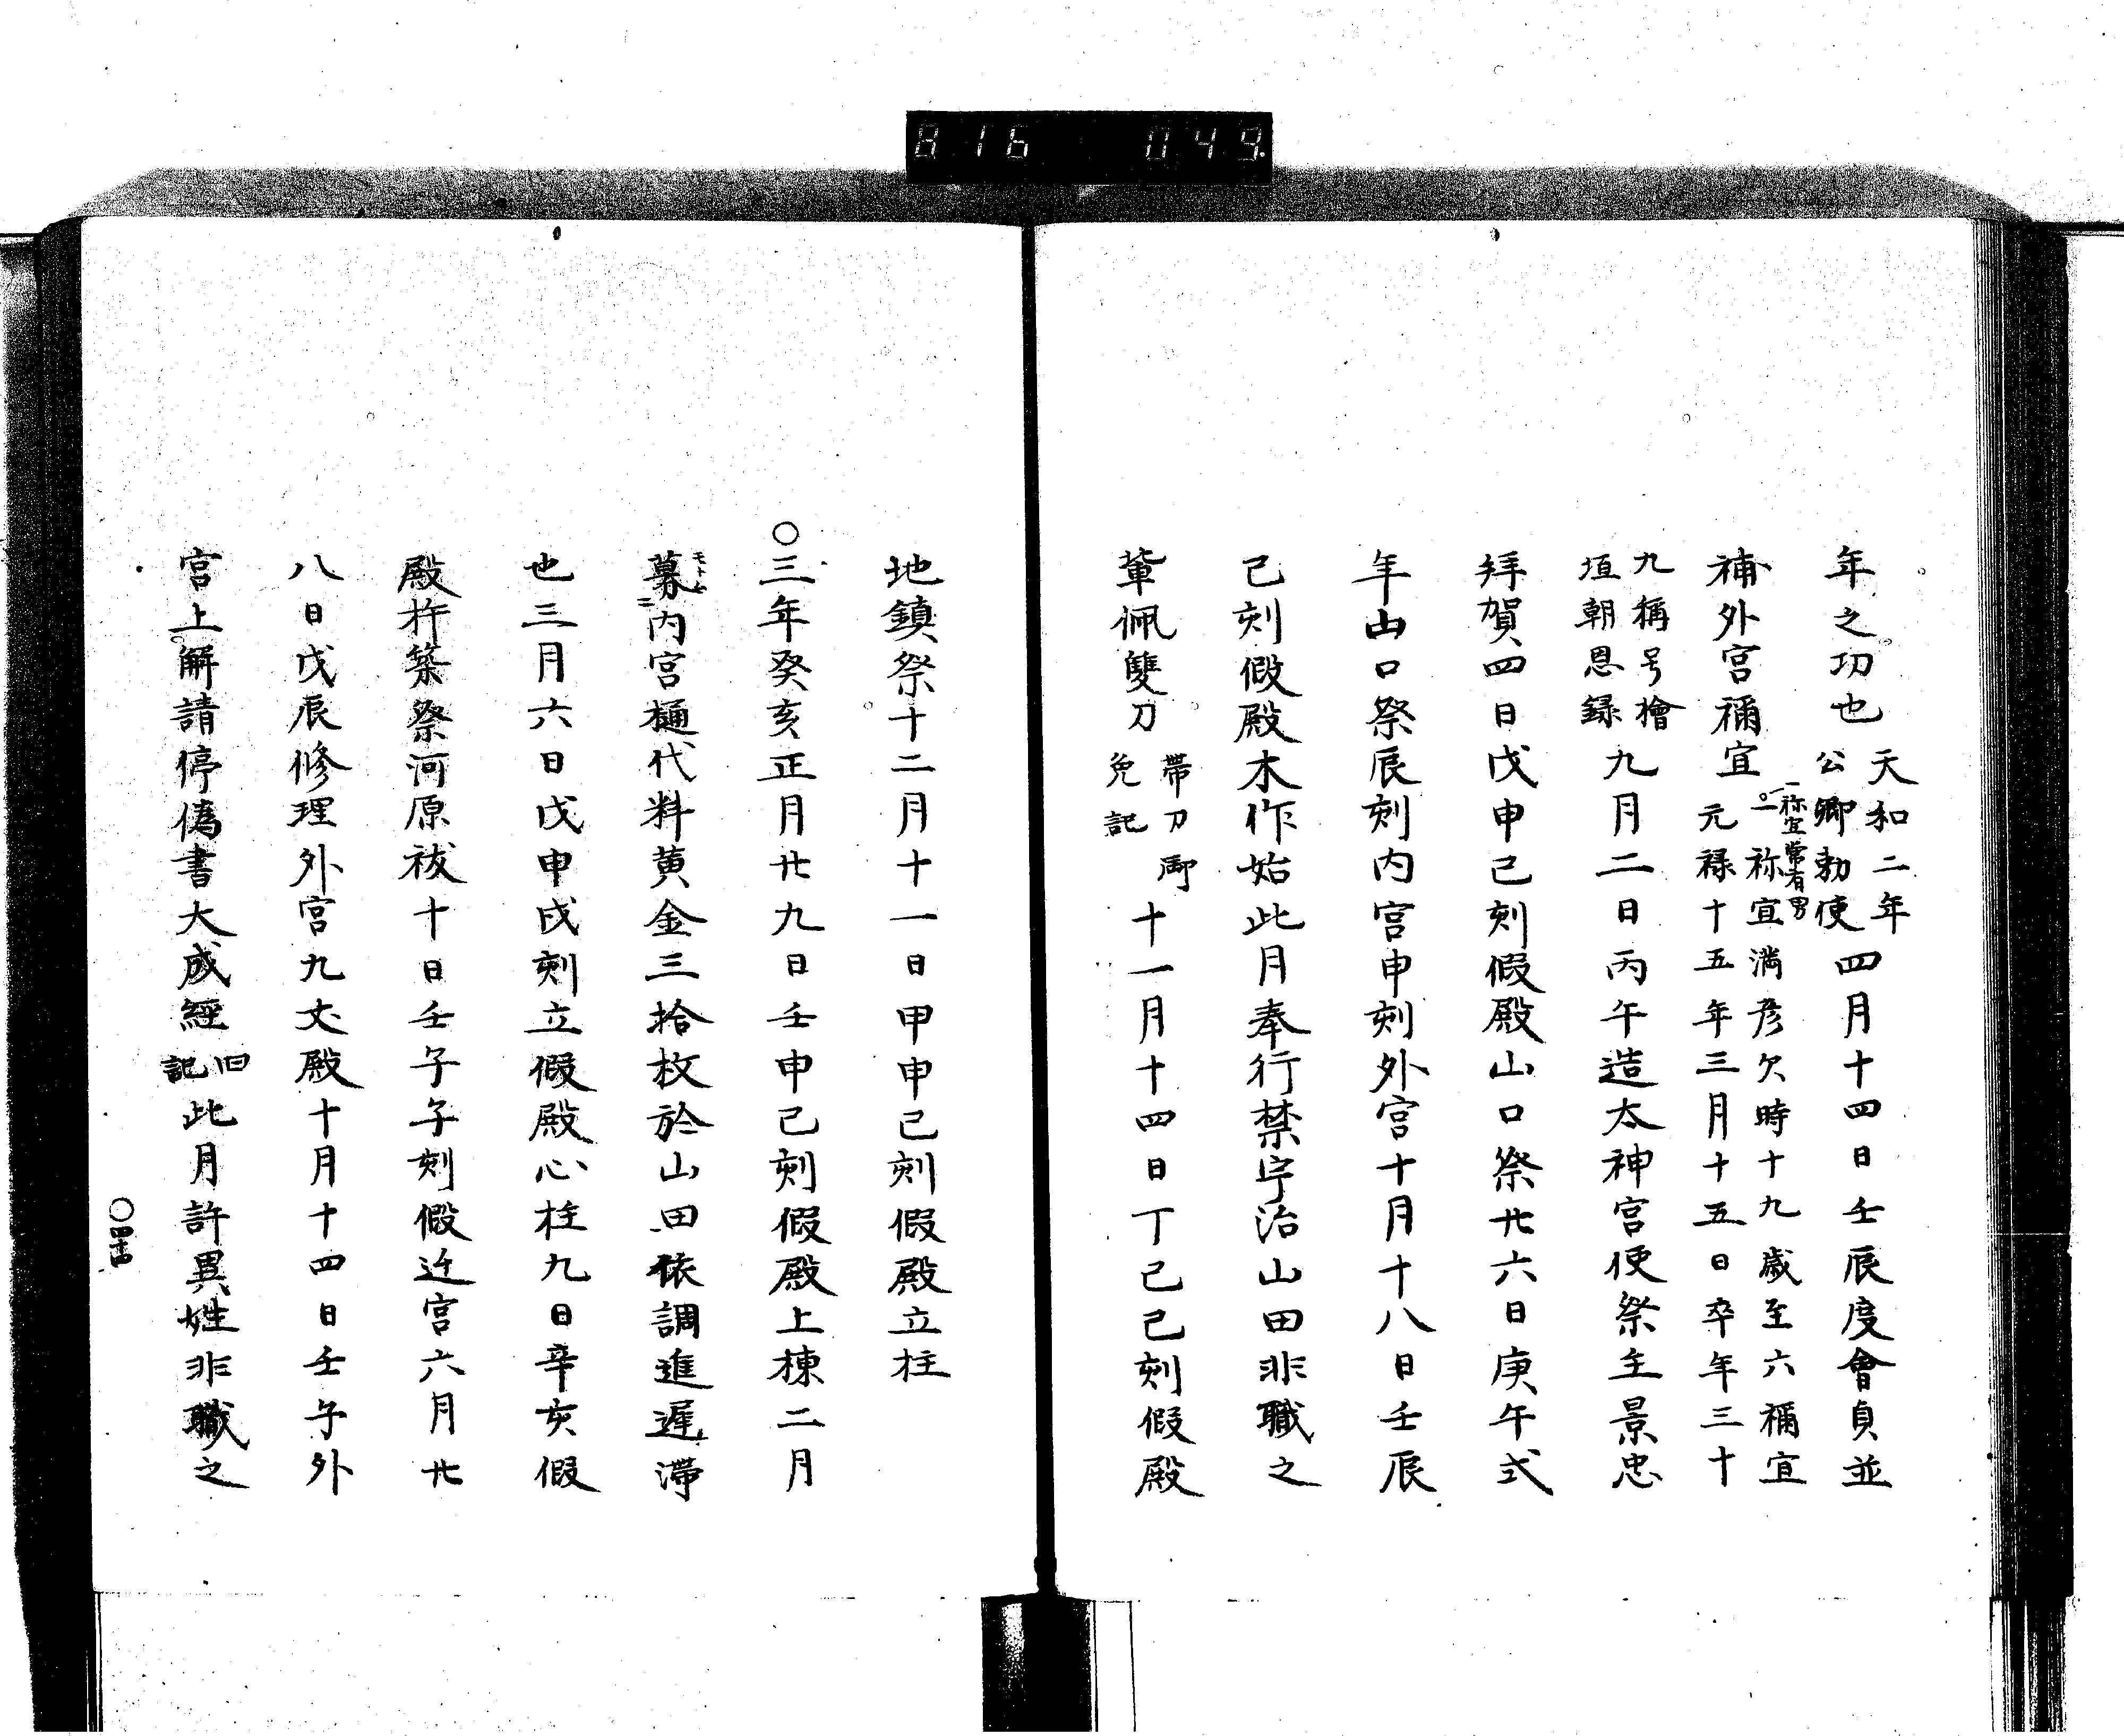 816 049
年之功也天和二年公卿勅使四月十四日壬辰度會貞並
補外宮禰宜一祢宜常有男二祢宜満彦欠時十九歳至六禰宜元禄十五年三月十五日卒年三十
九稱号檜垣朝恩録九月二日丙午造太神宮使祭主景忠
拜賀四日戊申巳刻假殿山口祭廿六日庚午式
年山口祭辰刻内宮申刻外宮十月十八日壬辰
巳刻假殿木作始此月奉行禁宇治山田非職之
輩佩雙刀帶刀御免記十一月十四日丁巳巳刻假殿
地鎮祭十二月十一日甲申巳刻假殿立柱
○三年癸亥正月廿九日壬申巳刻假殿上棟二月
募内宮樋代料黄金三拾枚於山田依調進遲滯
也三月六日戊申戌刻立假殿心柱九日辛亥假
殿杵築祭河原祓十日壬子子刻假迁宮六月廿
八日戊辰修理外宮九丈殿十月十四日壬子外
宮上解請停偽書大成經旧記此月許異姓非職之
○四十四